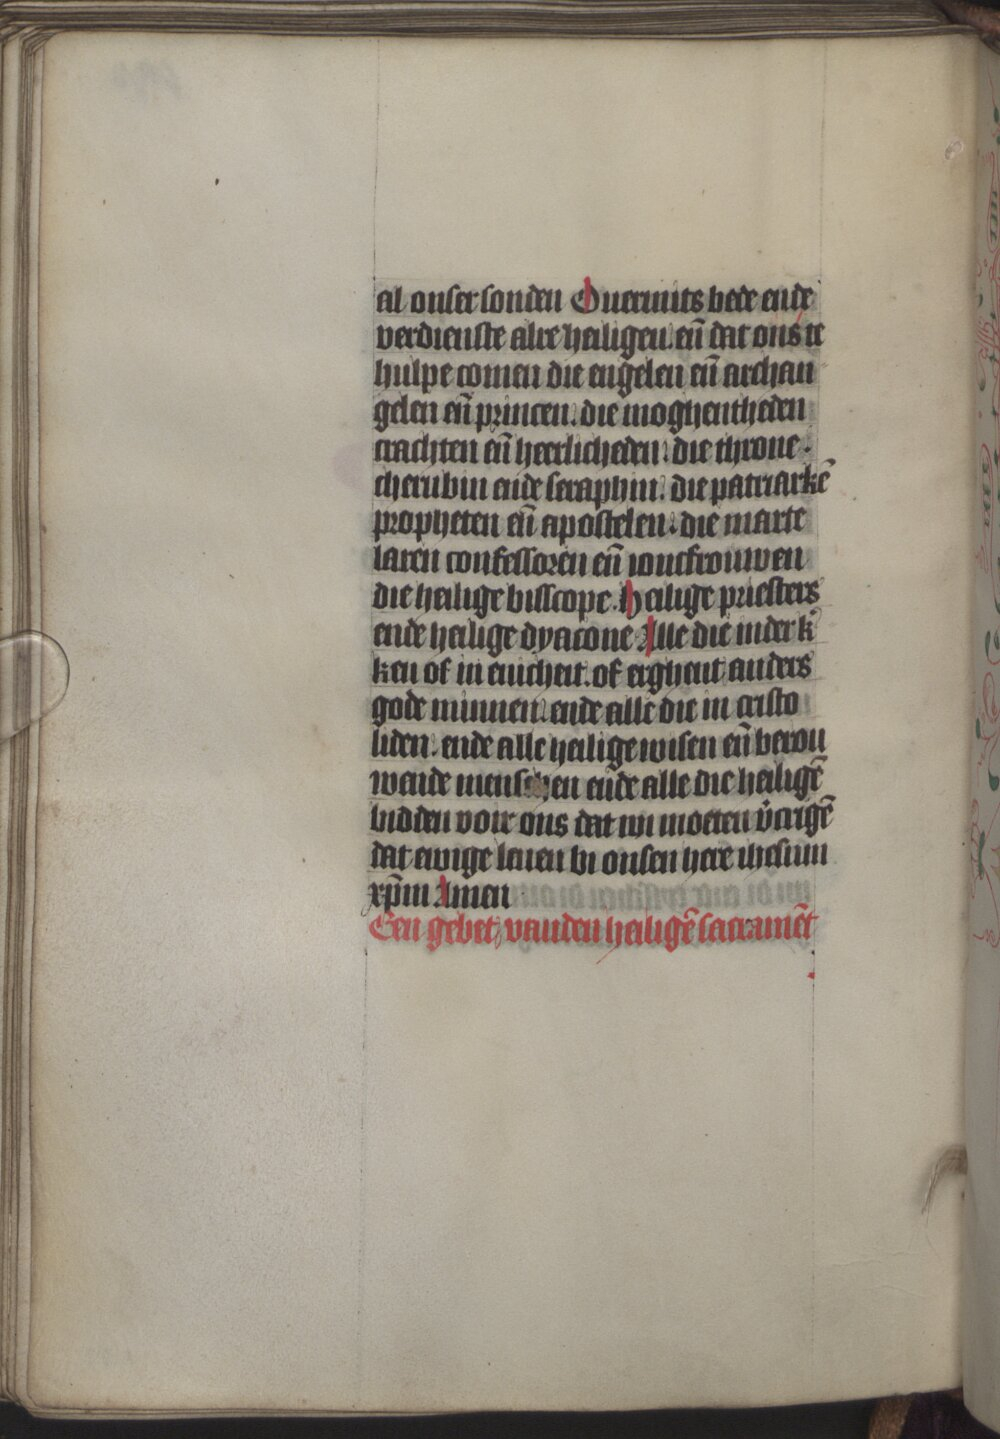 al onser sonden Ouermits bede ende
verdienste alre heiligen. en̄ dat ons te
hulpe comen die engelen en̄ archan
gelen en̄ princen. die moghentheden
crachten en̄ heerlicheden. die throne.
cherubin ende seraphin. die patriarkē
propheten en̄ apostelen. die marte
laren confessoren en̄ ioncfrouwen
die heilige bisscope. Heilige priesters
ende heilige dyacone Alle die inder k
ken of in enicheit. of erghent anders
gode minnen. ende alle die in cristo
liden. ende alle heilige wisen en̄ berou
wende menschen ende alle die heiligē
bidden voir ons dat wi moeten v̄crigē
dat ewige leuen bi onsen here ihesum
xp̄m Amen
Een gebet vanden heiligē sacramēt